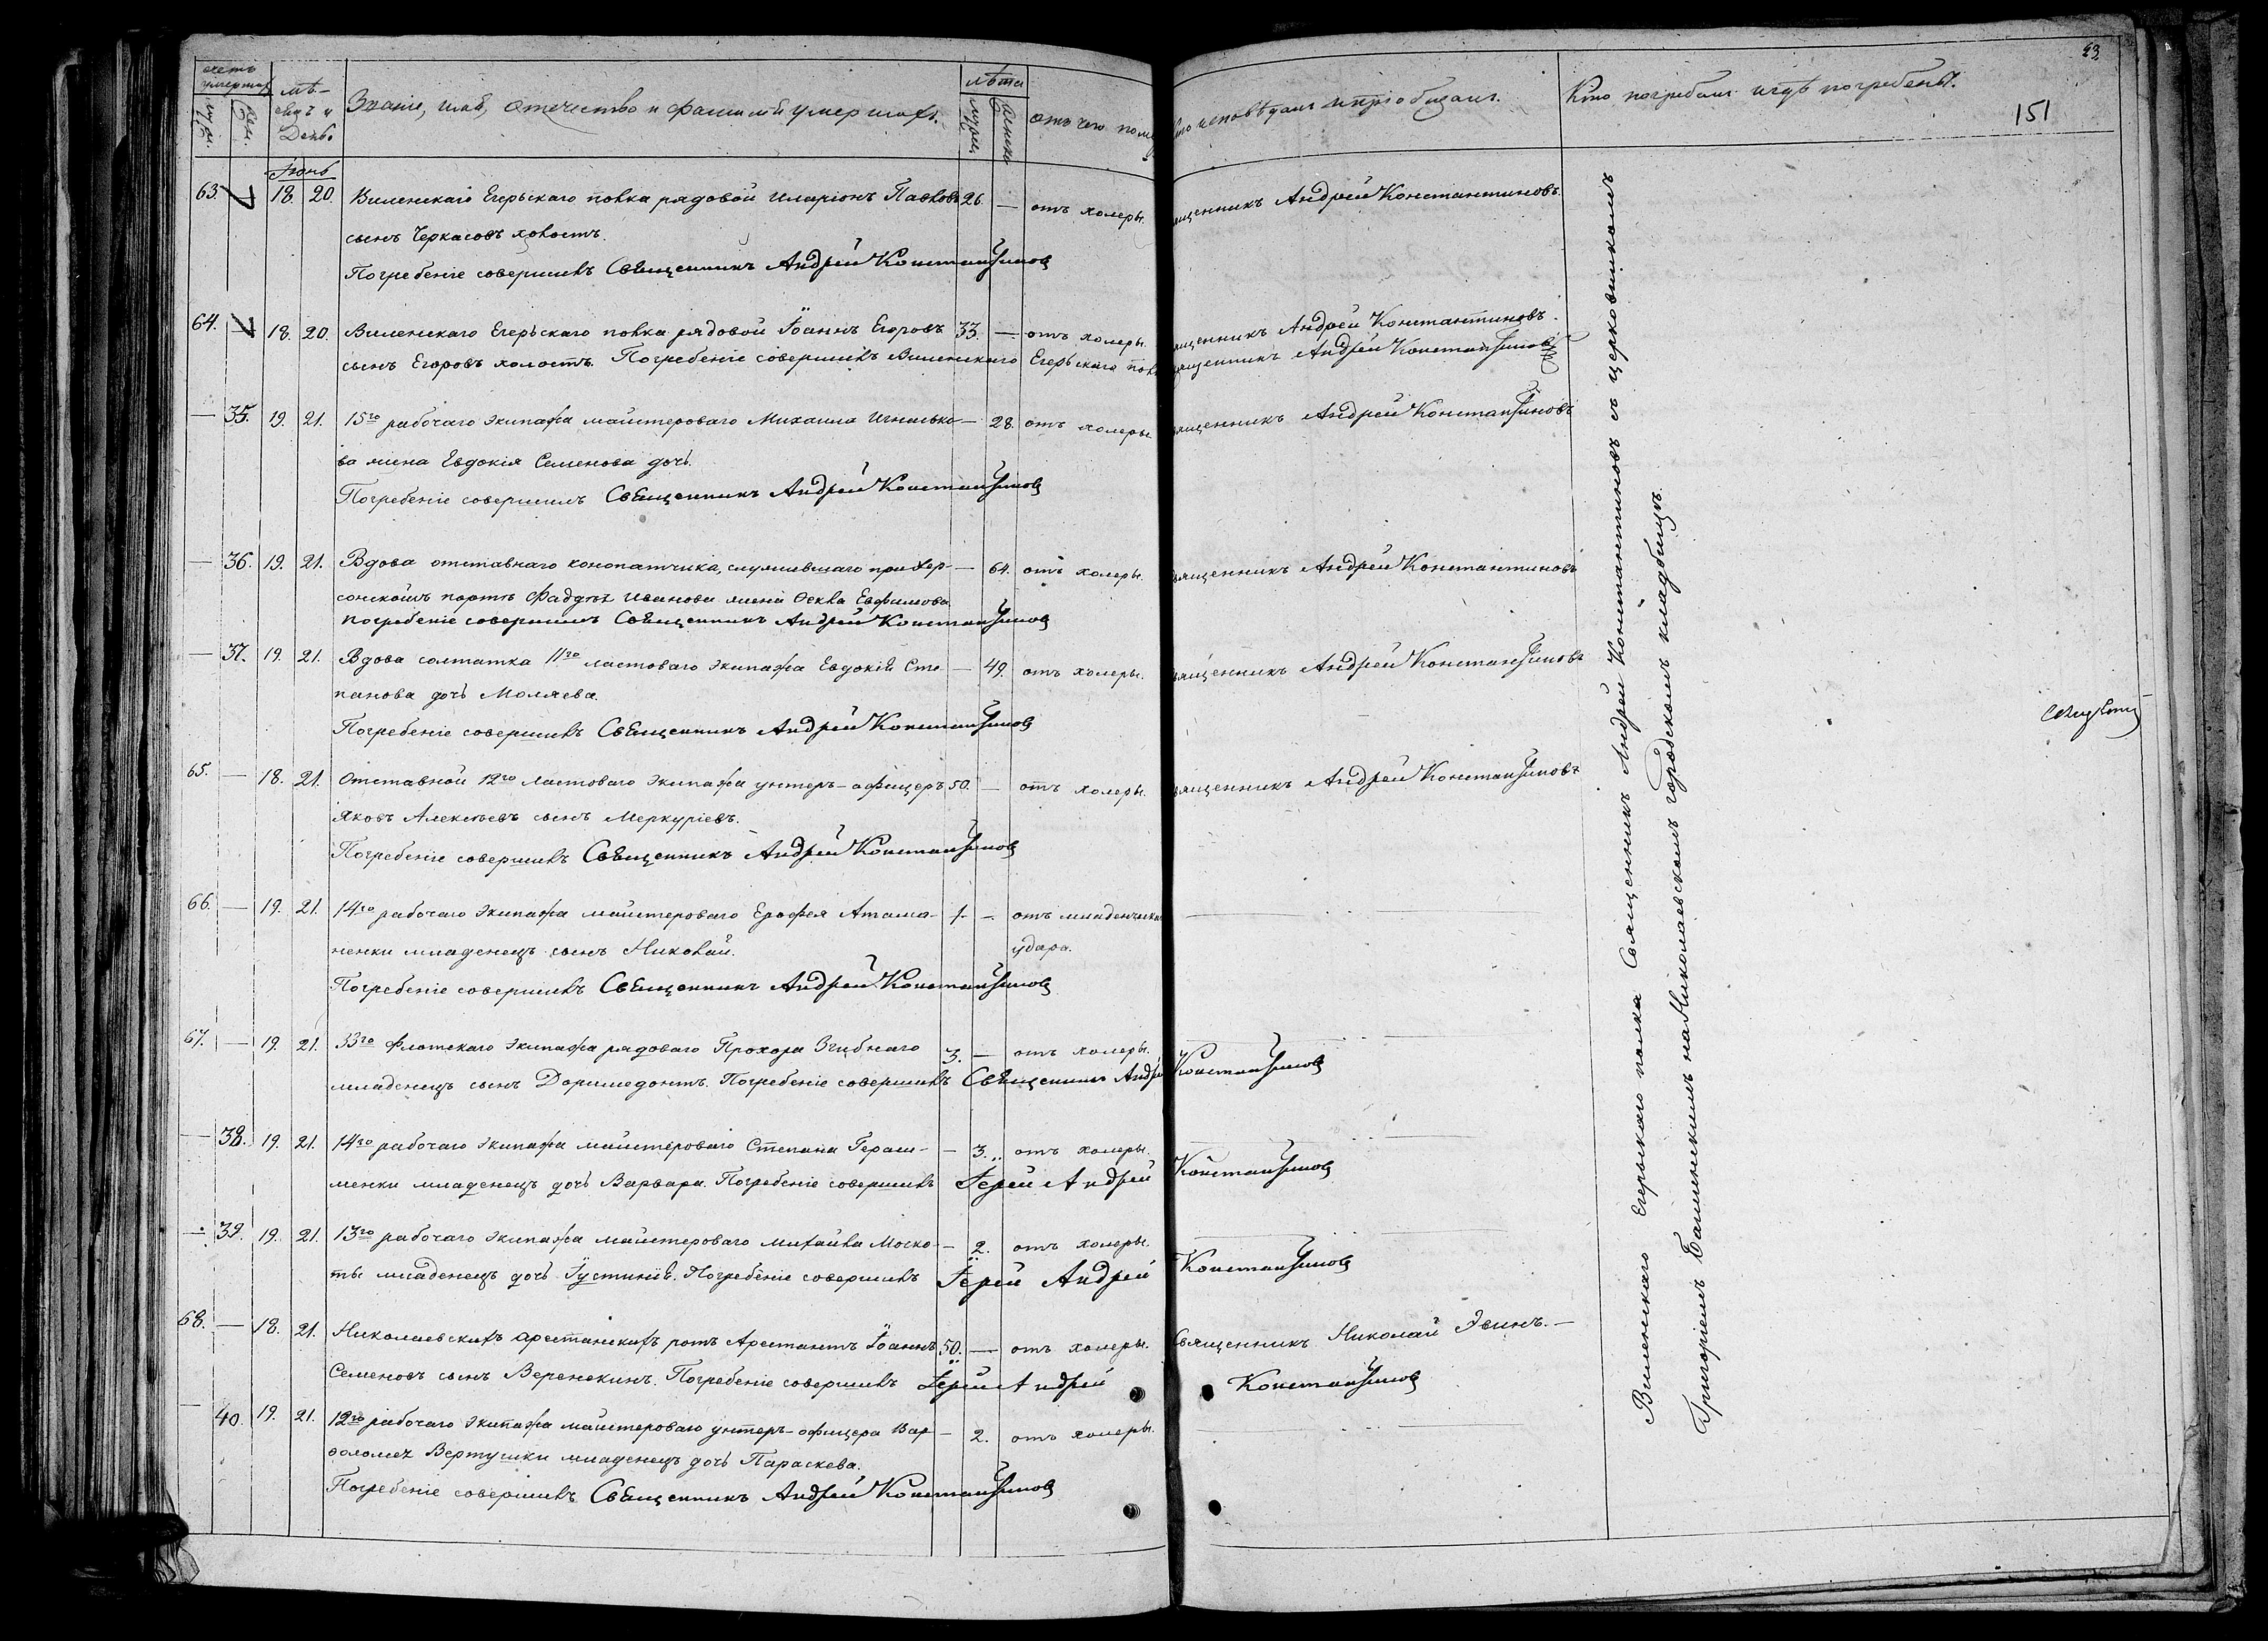 счетъ умершихъ
муж.
жен.
мѣ-
сяцъ и
День.
Званіе, имя, отечество и фамилія умершихъ.
лѣта
мужес.
женска
отъ чего поме
исповѣдалъ и пріобщалъ.
Кто погребалъ и гдѣ погребены.
151
Іюнь
63. 18. 20. Виленскаго Егерьскаго полка рядовой Иларіонъ Павловъ 26. — отъ холеры. щенникъ Андрей Константиновъ.
сынъ Черкасовъ холостъ.
Погребеніе совершилъ Священникъ Андрей Константиновъ
64. — 18. 20. Виленскаго Егерьскаго полка рядовой Іоаннъ Егоровъ 33. — отъ холеры. щенникъ Андрей Константиновъ.
сынъ Егоровъ холостъ. Погребеніе совершилъ Виленскаго Егерьскаго полк щенникъ Андрей Константиновъ
— 35. 19. 21. 15го рабочаго экипажа майстероваго Михаила Игнатько — 28. отъ холеры щенникъ Андрей Константиновъ
ва жена Евдокія Семенова дочь.
Погребеніе совершилъ Священникъ Андрей Константиновъ
— 36. 19. 21. Вдова отставнаго конопатчика, служившаго при Хер- — 64. отъ холеры. вященникъ Андрей Константиновъ
сонскомъ портѣ Фаддея Иванова жена Ѳекла Евфимова
погребеніе совершилъ Священникъ Андрей Константиновъ
— 37. 19. 21. Вдова солтатка 11го ластоваго экипажа Евдокія Сте — 49. отъ холеры. вященникъ Андрей Константиновъ
панова дочь Моляева.
Погребеніе совершилъ Священникъ Андрей Константиновъ
65. — 18. 21. Отставной 12го ластоваго экипажа унтеръ-офицеръ 50. — отъ холеры. вященникъ Андрей Константиновъ
Яковъ Алексѣевъ сынъ Меркуріевъ.
Погребеніе совершилъ Священникъ Андрей Константиновъ
66. — 19. 21. 14го рабочаго экипажа майстероваго Ерофея Атама- 1. — отъ младенческа
ненки младенецъ сынъ Николай. удара.
Погребеніе совершилъ Священникъ Андрей Константиновъ
67. — 19. 21. 33го флотскаго экипажа рядоваго Прохора Згибнаго 3. — отъ холеры.
младенецъ сынъ Доримедонтъ. Погребеніе совершилъ Священникъ Андре Константиновъ
— 38. 19. 21. 14го рабочаго экипажа майстероваго Степана Гераси- — 3. отъ холеры.
менки младенецъ дочь Варвара. Погребеніе совершилъ Іерей Андрей Константиновъ
— 39. 19. 21. 13го рабочаго экипажа майстероваго Михаила Моско- — 2. отъ холеры.
ты младенецъ дочь Іустинія. Погребеніе совершилъ Іерей Андрей Константиновъ
68. — 18. 21. Николаевскихъ арестанскихъ ротъ Арестантъ Іоаннъ 50. — отъ холеры. Священникъ Николай Эсинъ. —
Семеновъ сынъ Веренекинъ. Погребеніе совершилъ Іерей Андрей Константиновъ
— 40. 19. 21. 12го рабочаго экипажа майстероваго унтеръ-офицера Вар — 2. отъ холеры.
ѳоломея Вертушки младенецъ дочь Параскева.
Погребеніе совершилъ Священникъ Андрей Константиновъ
Виленскаго Егерьскаго полка Священникъ Андрей Константиновъ съ церковникомъ
Григоріемъ на Николаевскомъ городскомъ кладбищѣ.